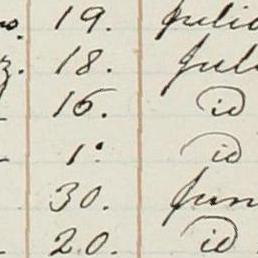 19. Julio
18. Jul
16. id
1º id
30. Jun
20. id